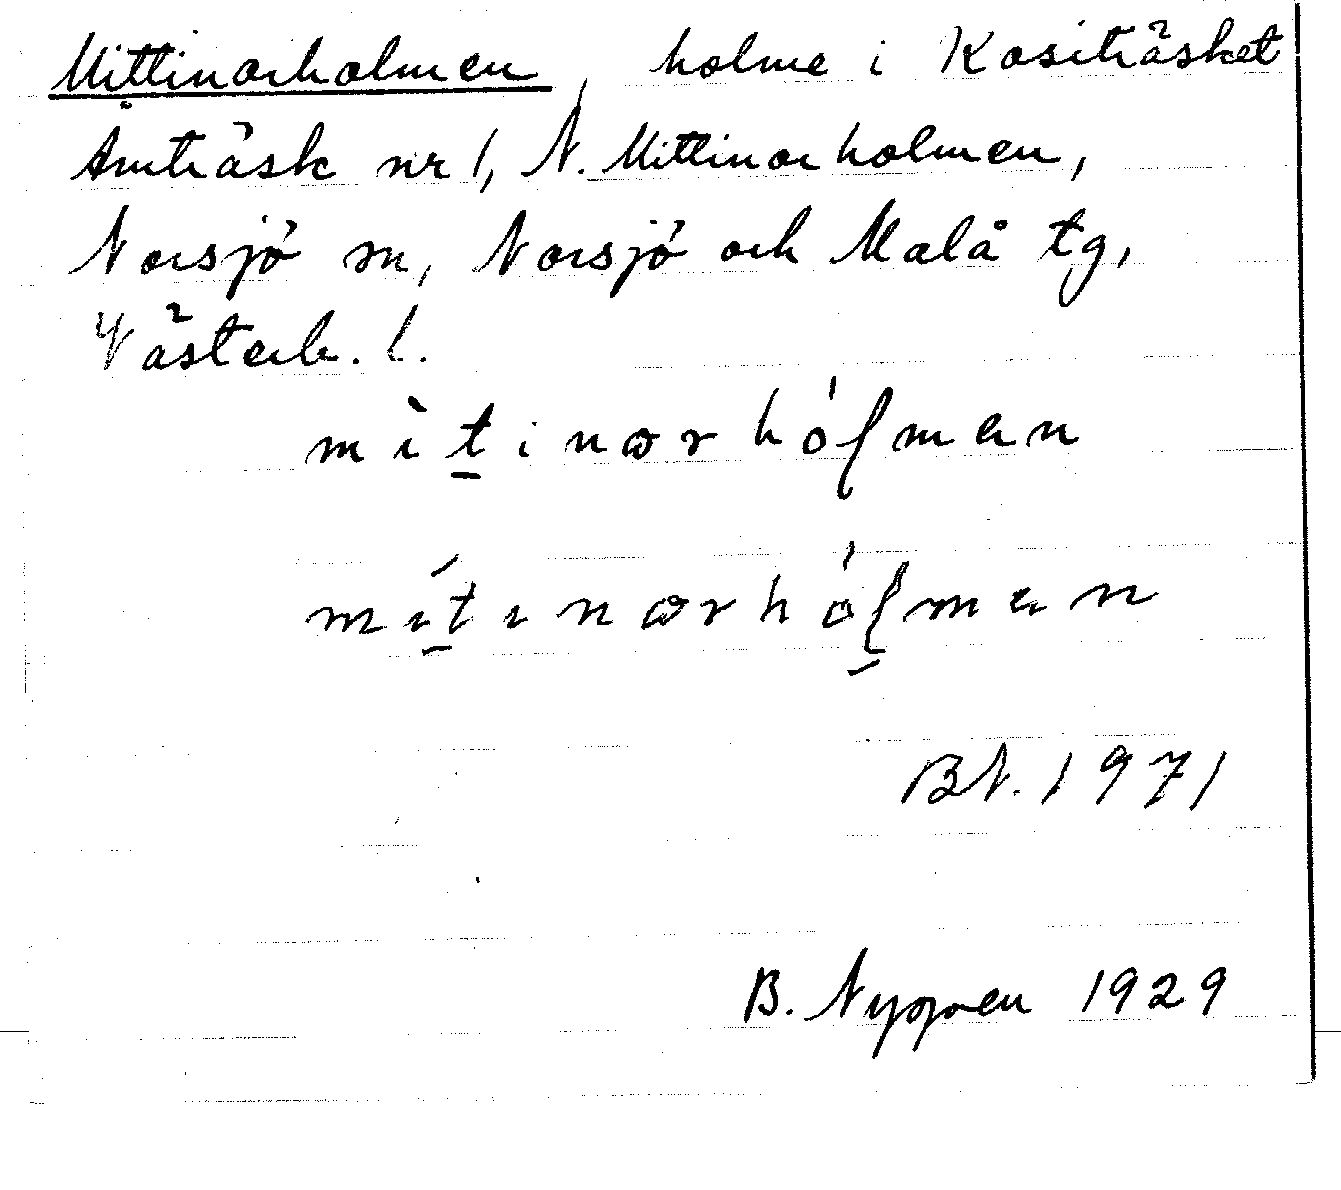 Mittinorholmen, holme i Kositräsket
Åmträsk nr 1, N. Mittinorholmen,
Norsjö sn, Norsjö och Malå tg,
Västerb. l.
mìṯinɷrhóɭmɐn
míṯınɷrhóɭ̱mɐn
BN. 1971
B. Nygren 1929